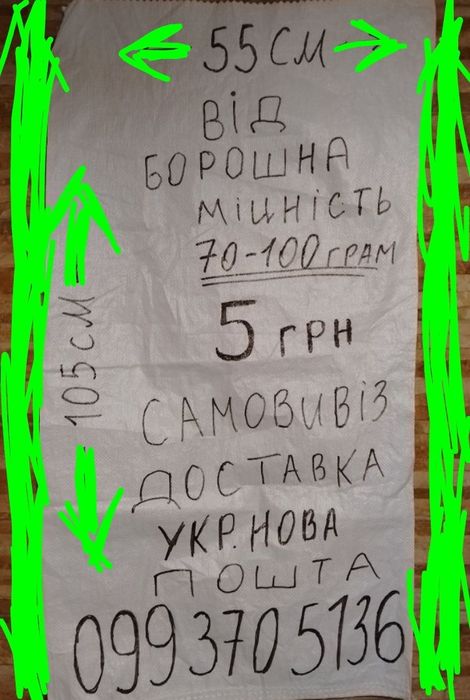 55 СМ
ВІД
БОРОШНА
МІЦНІСТЬ
70-100 ГРАМ
5 ГРН
105 СМ
САМОВИВІЗ
ДОСТАВКА
УКР. НОВА
ПОШТА
0993705136